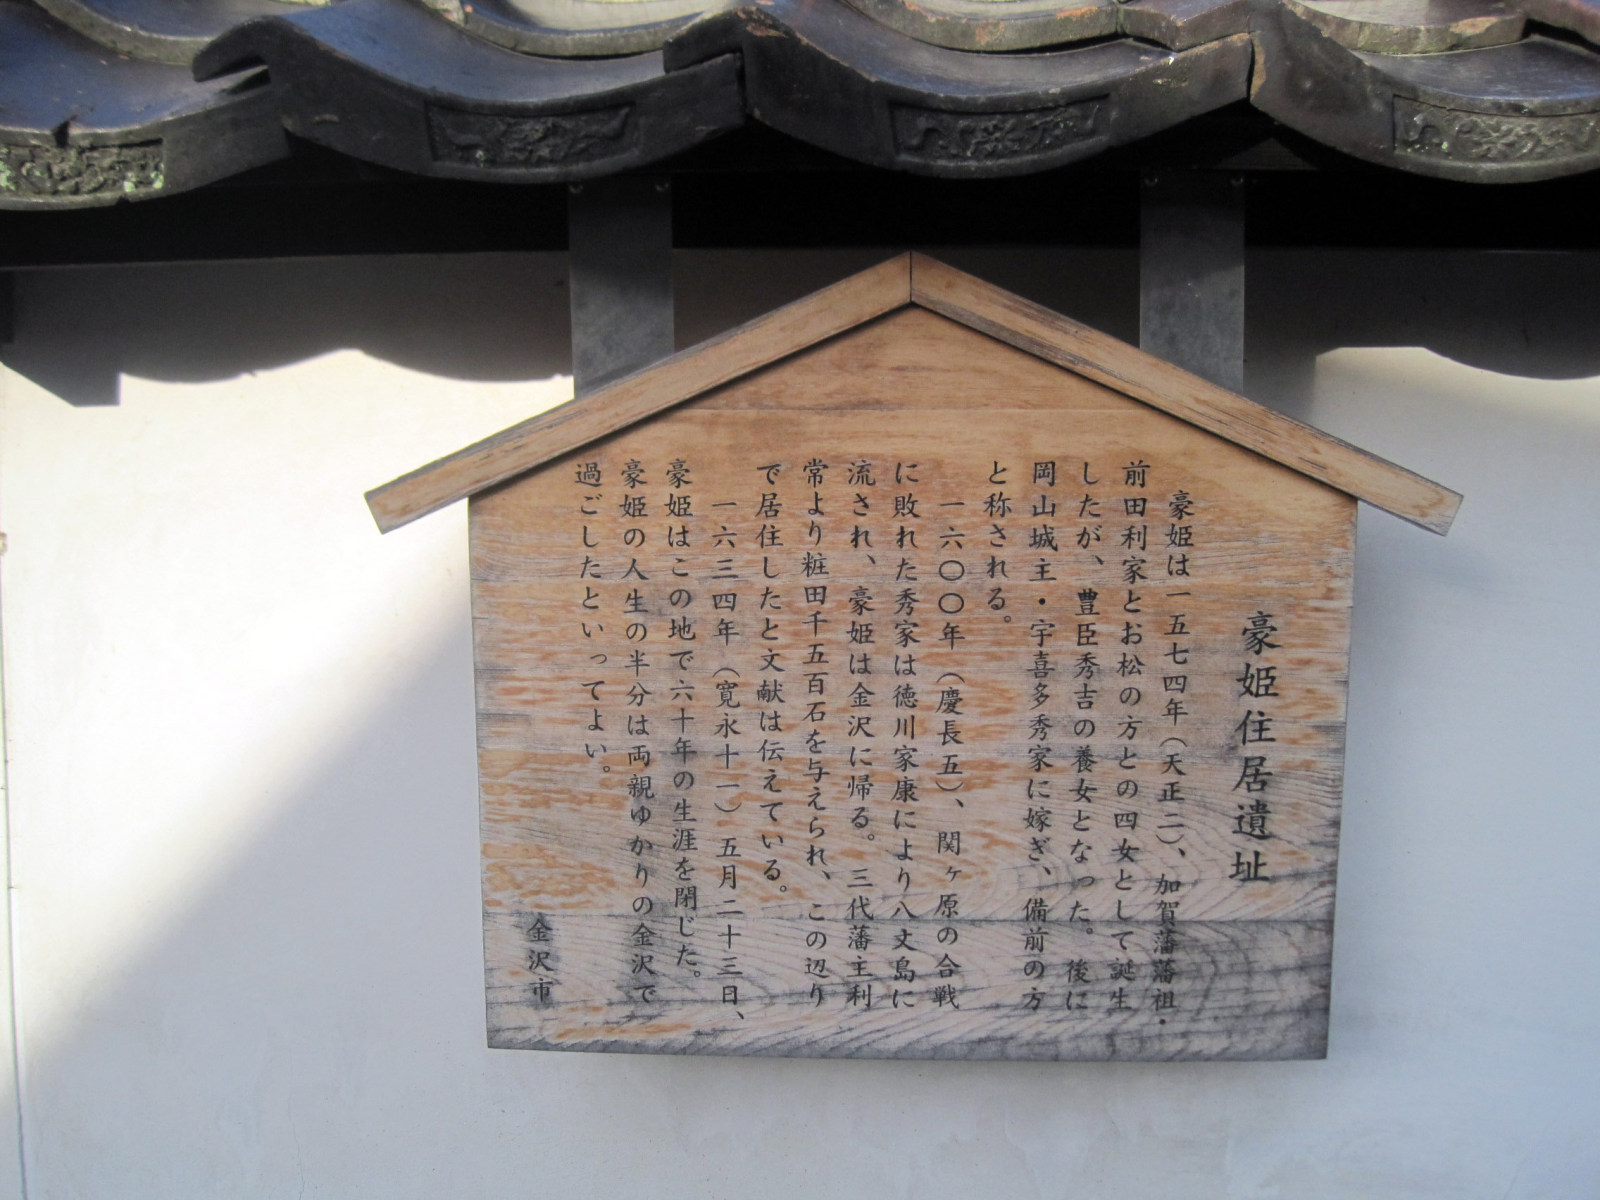 豪姫住居遺址
豪姫は一五七四年（天正二）、加賀藩藩祖・
前田利家とお松の方との四女として誕生
したが、豊臣秀吉の養女となった。後に
岡山城主・宇喜多秀家に嫁ぎ、備前の方
と称される。
一六〇〇年（慶長五）、関ヶ原の合戦
に敗れた秀家は徳川家康により八丈島に
流され、豪姫は金沢に帰る。三代藩主利
常より粧田千五百石を与えられ、この辺り
で居住したと文献は伝えている。
一六三四年（寛永十一）五月二十三日、
豪姫はこの地で六十年の生涯を閉じた。
豪姫の人生の半分は両親ゆかりの金沢で
過ごしたといってよい。
金沢市